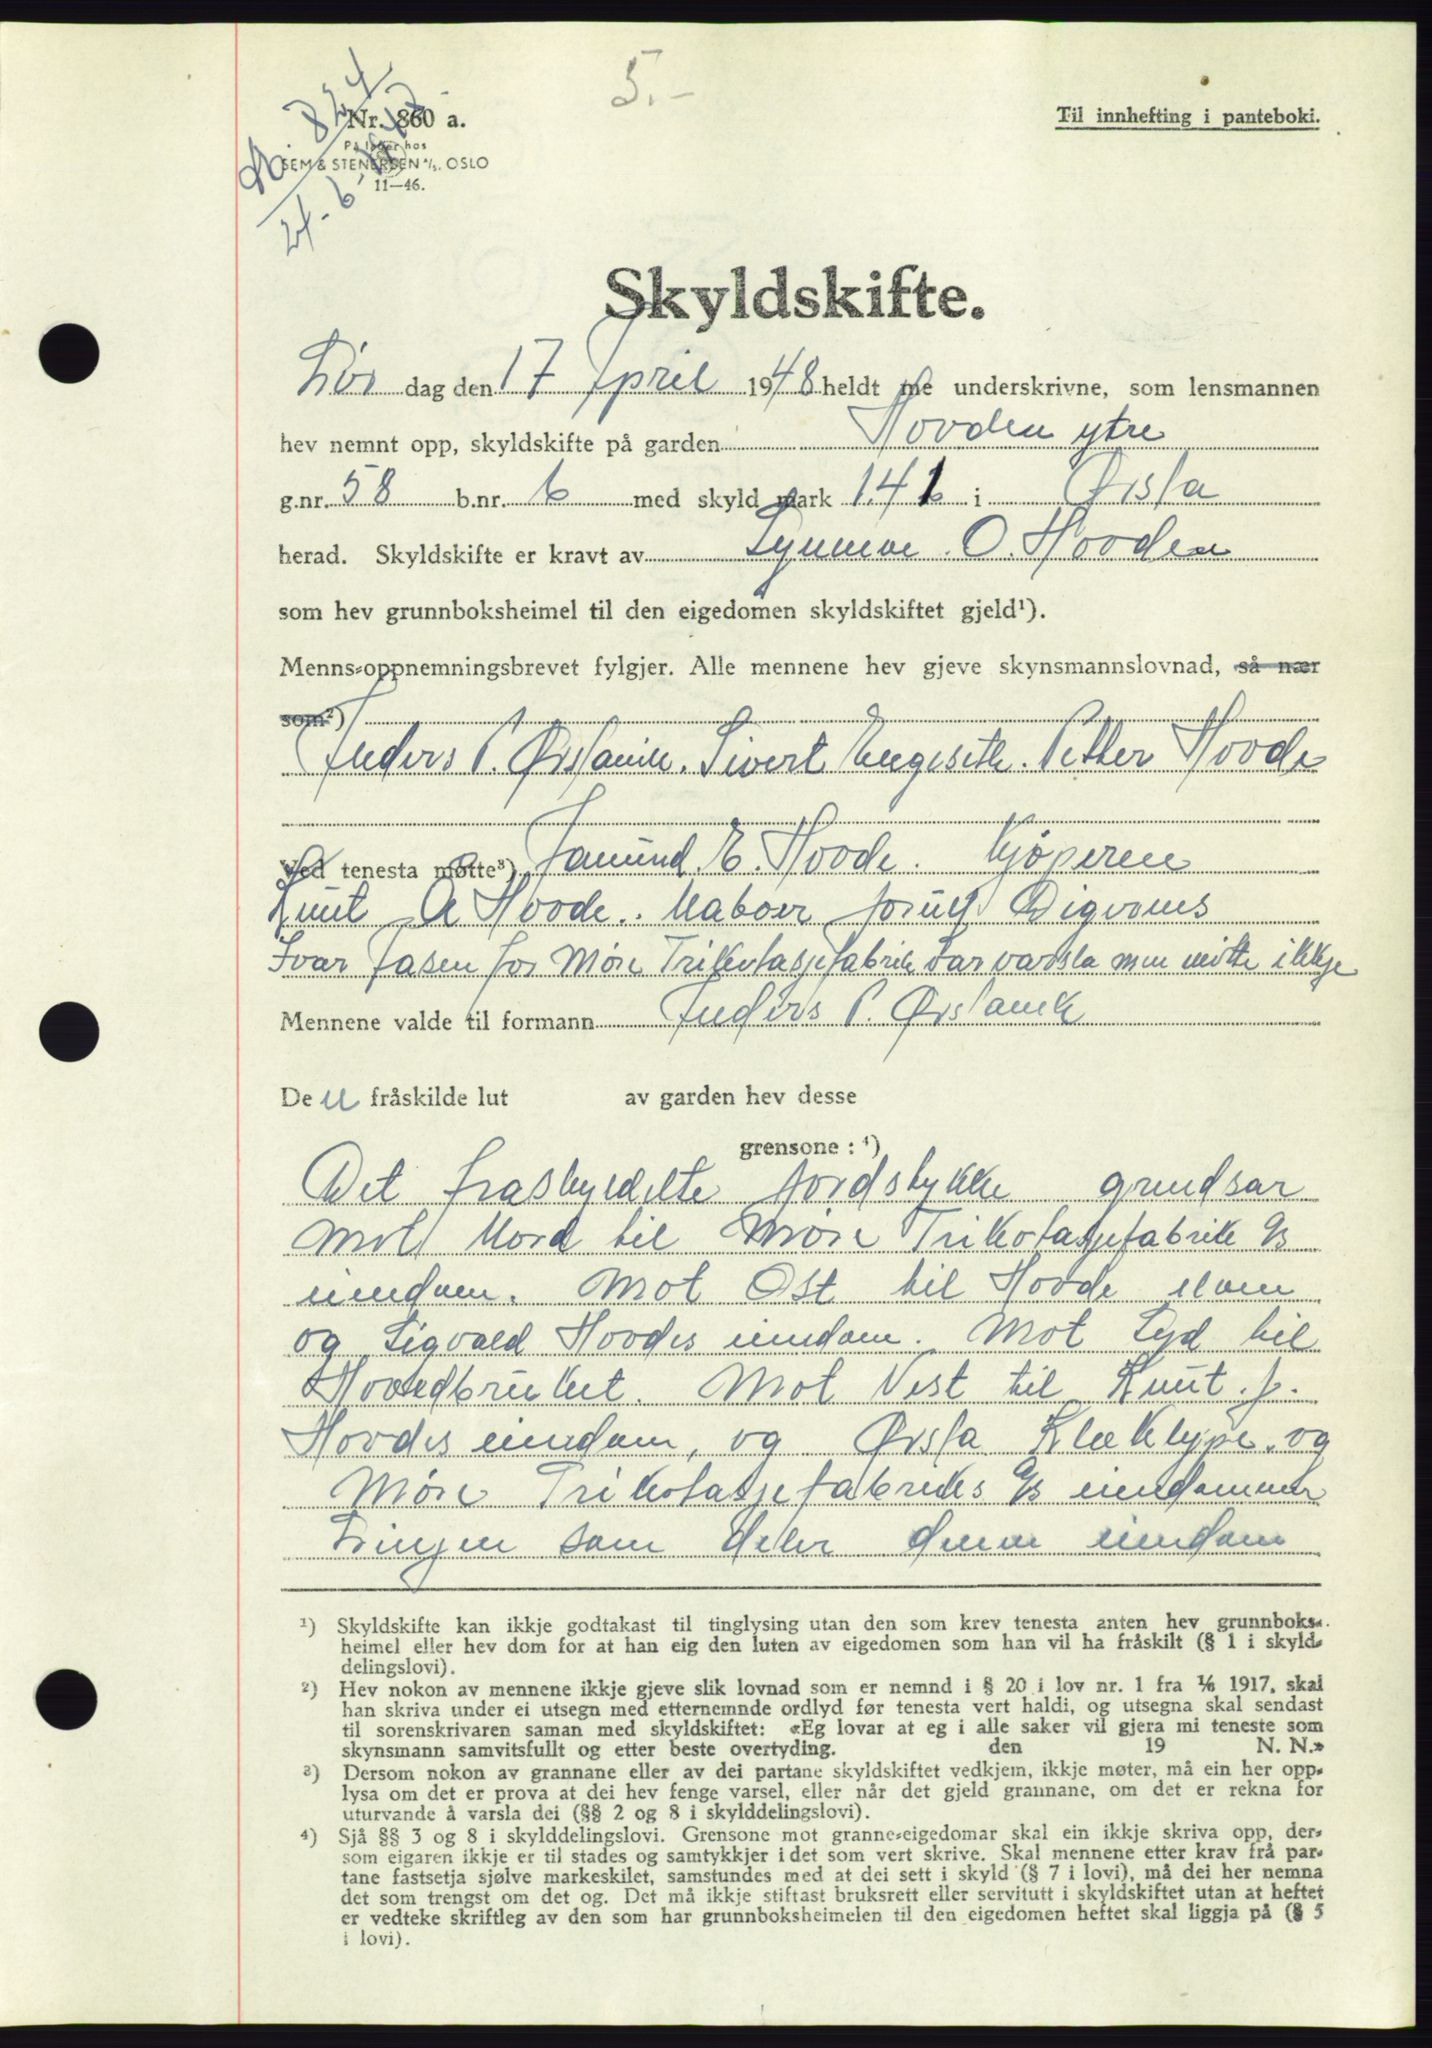 5.-
Nr. 824
21-6-1948
Nr. 860 a.
På lager hos
SEM & STENERSEN A/S. OSLO
11—46.
Til innhefting i panteboki.
Skyldskifte.
Lør dag den 17 April 1948 heldt me underskrivne, som lensmannen
hev nemnt opp, skyldskifte på garden Hovden ytre
g.nr. 58 b.nr. 6 med skyld mark 1.41 i Ørsta
herad. Skyldskifte er kravt av O. Hovden
som hev grunnboksheimel til den eigedomen skyldskiftet gjeld¹).
Menns-oppnemningsbrevet fylgjer. Alle mennene hev gjeve skynsmannslovnad, så nær
som²)
Anders P. Ørstavik. Sivert Engeseth. Petter Hovde
Ved tenesta møtte³) Amund. E. Hovde. Kjøperen
Knut A Hovde.. Naboer
Ivar Aasen for Møre Trikotasjefabrik var varsla men møtte ikkje
Mennene valde til formann Anders P. Ørstavik
De n fråskilde lut av garden hev desse
grensone : ⁴)
Det fraskyldelte jordstykke grendsar
mot Nord til Møre Trikotasjefabrik A/S
eiendom. Mot Ost til Hovde elven
og Sigvald Hovdes eiendom. Mot Syd til
Hovedbruket. Mot Vest til Knut. A.
Hovdes eiendom, og Ørsta Klæklype. og
Møre Trikotasjefabriks A/S eiendommer
Linjen som deler denne eiendom
¹) Skyldskifte kan ikkje godtakast til tinglysing utan den som krev tenesta anten hev grunnboks-
heimel eller hev dom for at han eig den luten av eigedomen som han vil ha fråskilt (§ 1 i skyld-
delingslovi).
²) Hev nokon av mennene ikkje gjeve slik lovnad som er nemnd i § 20 i lov nr. 1 fra 1/6 1917, skal
han skriva under ei utsegn med etternemnde ordlyd før tenesta vert haldi, og utsegna skal sendast
til sorenskrivaren saman med skyldskiftet: «Eg lovar at eg i alle saker vil gjera mi teneste som
skynsmann samvitsfullt og etter beste overtyding. den 19 N. N.»
³) Dersom nokon av grannane eller av dei partane skyldskiftet vedkjem, ikkje møter, må ein her opp-
lysa om det er prova at dei hev fenge varsel, eller når det gjeld grannane, om det er rekna for
uturvande å varsla dei (§§ 2 og 8 i skylddelingslovi).
⁴) Sjå §§ 3 og 8 i skylddelingslovi. Grensone mot granne-eigedomar skal ein ikkje skriva opp, der-
som eigaren ikkje er til stades og samtykkjer i det som vert skrive. Skal mennene etter krav frå par-
tane fastsetja sjølve markeskilet, samstundes med at dei sett i skyld (§ 7 i lovi), må dei her nemna
det som trengst om det og. Det må ikkje stiftast bruksrett eller servitutt i skyldskiftet utan at heftet
er vedteke skriftleg av den som har grunnboksheimelen til den eigedomen heftet skal liggja på (§ 5
i lovi).